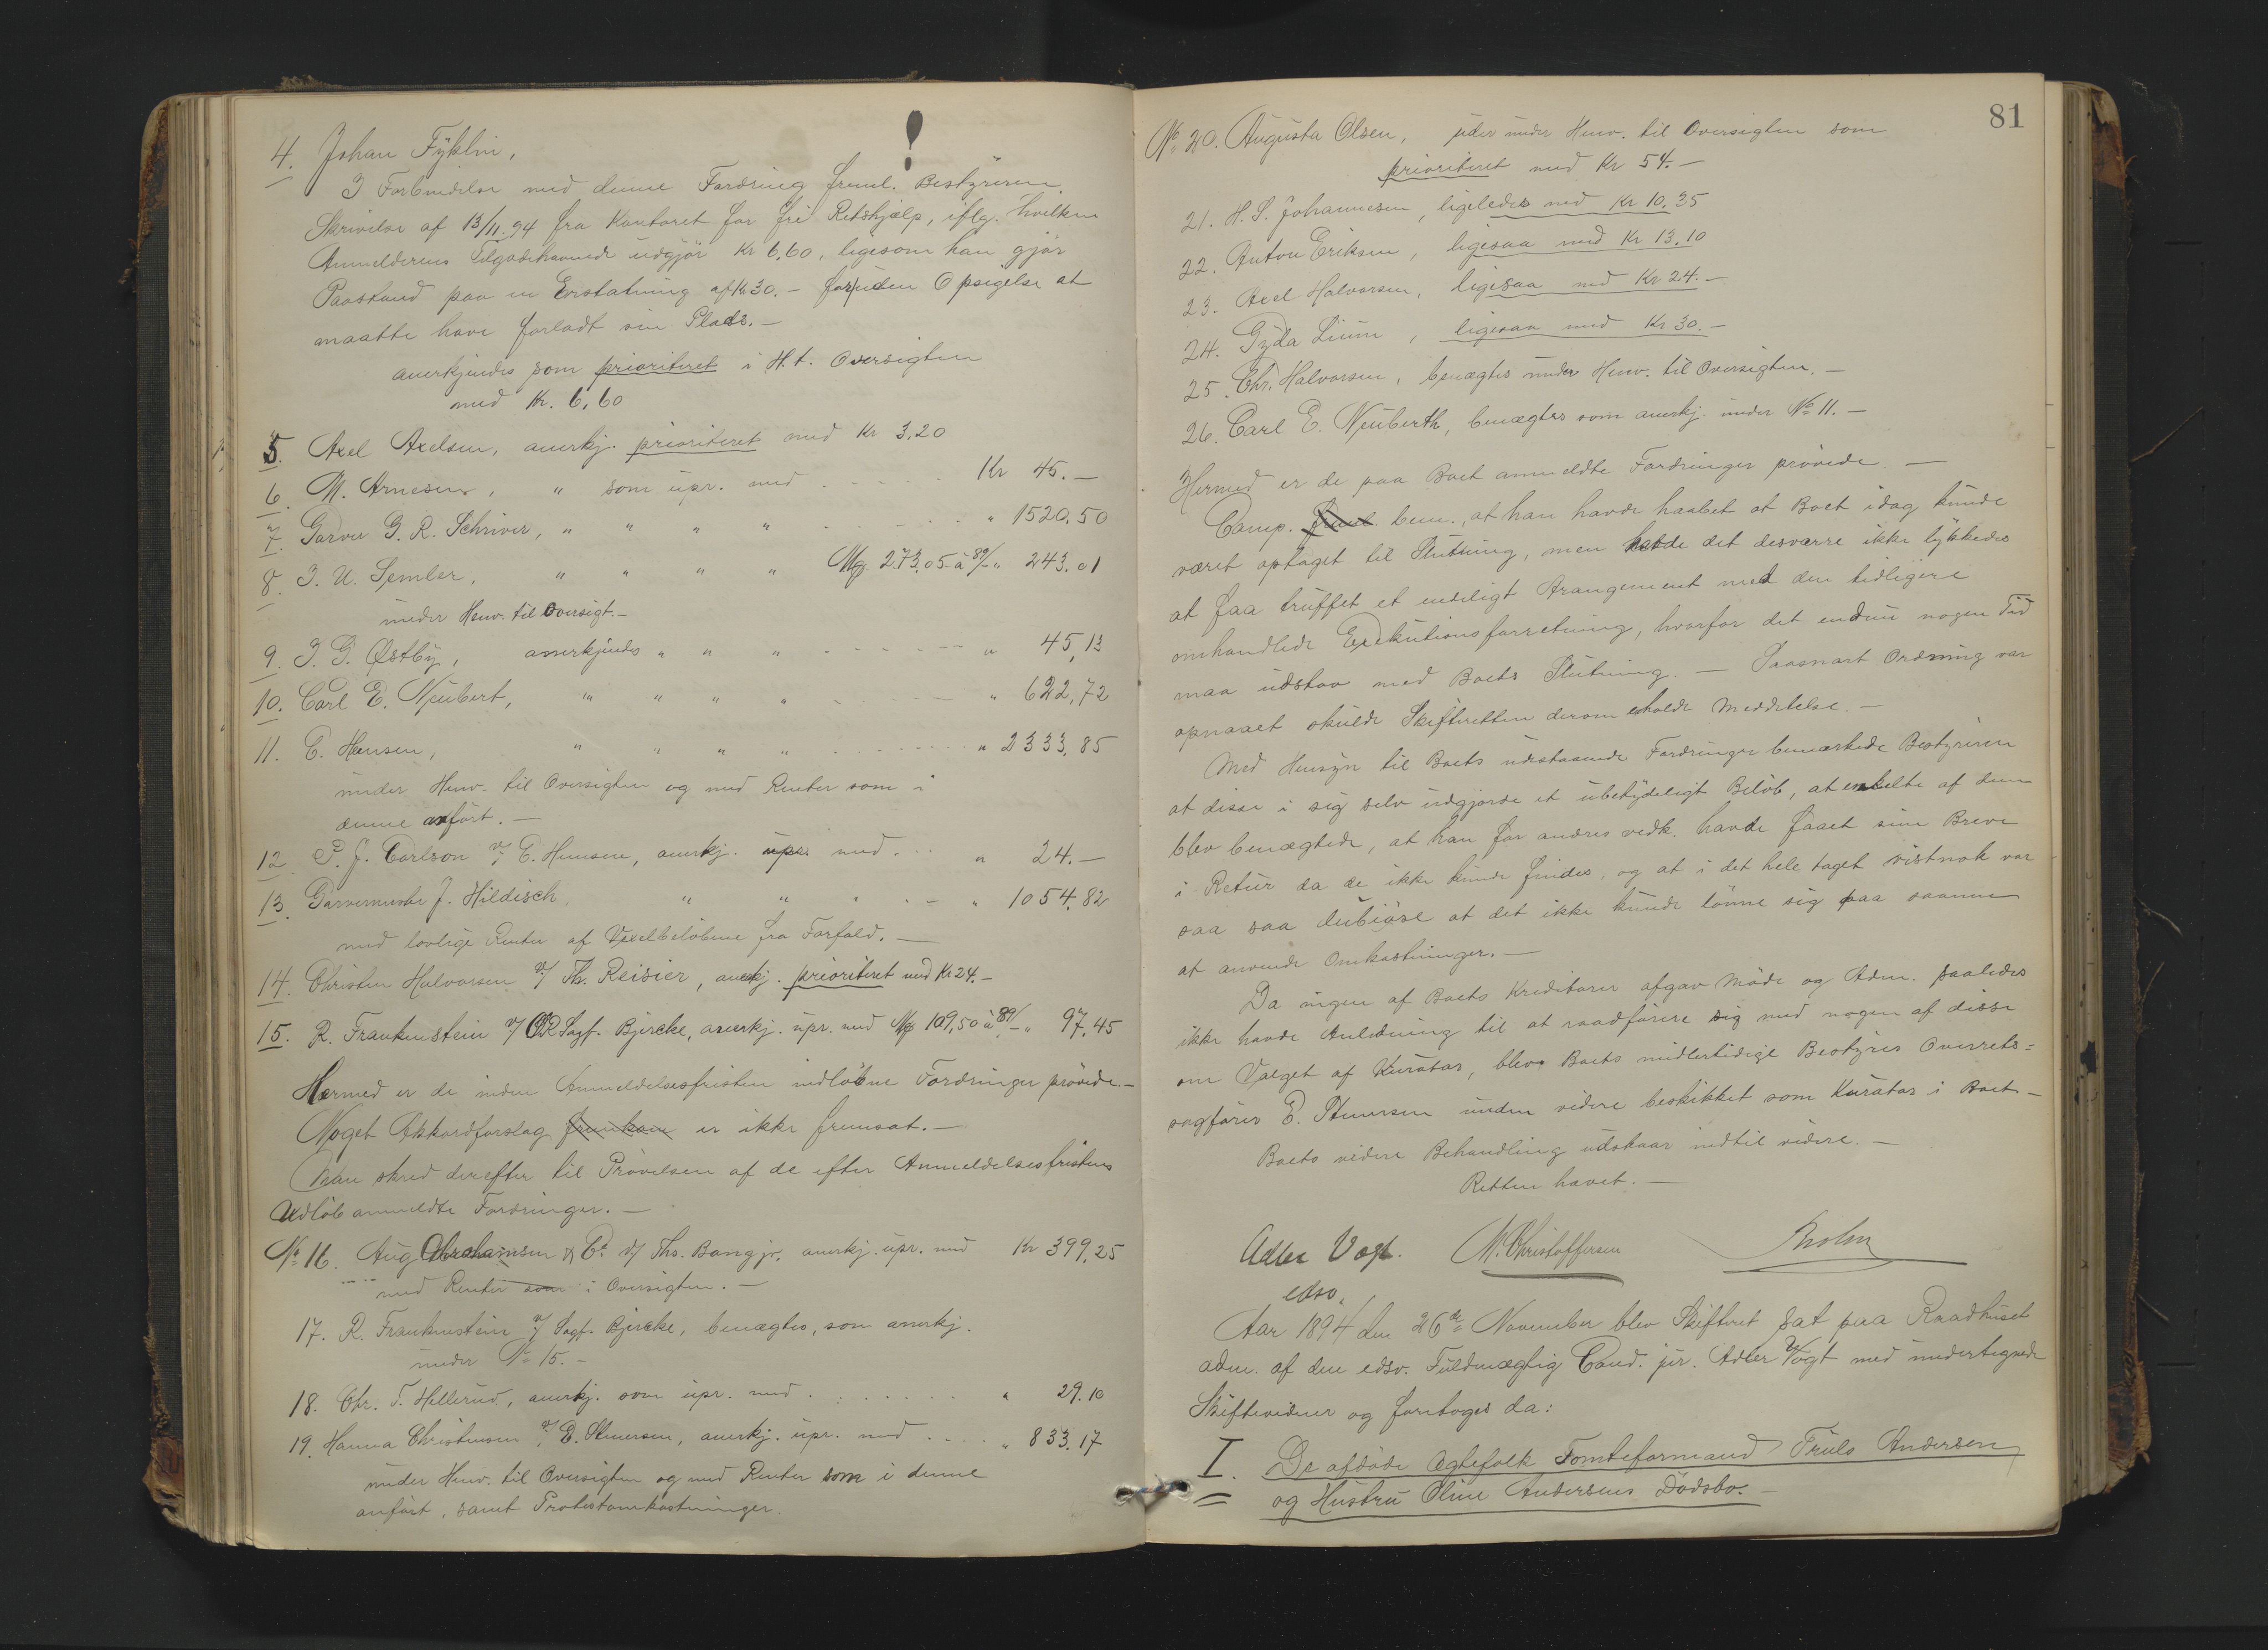 4. Johan Fyklin,
I Forbindelse med denne Fordring freml. Bestyreren
Skrivelse af 13/11.94 fra Kontoret for fri Retshjælp, iflg. hvilken
Anmelderens Tilgodehavende udgjør Kr 6,60, ligesom han gjør
Paastand paa en Erstatning af Kr 30.- for uden Opsigelse at
maatte have forladt sin Plads.-
anerkjendes som prioriteret i H.t. Oversigten
med Kr. 6,60
5. Axel Axelsen, anerkj. prioriteret med Kr 3,20
6. M. Arnesen, " som upr. med . . . . Kr 45.-
7. Garver G. R. Schriver, " " " " . . . . " 1520,50
8. I. U. Semler, " " " " Mg. 273,05 à 89/- " 243.01
under Henv. til Oversigt.-
9. I. G. Østby, anerkjendes " " " - - - - " 45,13
10. Carl E. Njubert, " " " " . . . . " 622,72
11. E. Hansen, " " " " . . . . " 2333,85
under Henv. til Oversigten og med Renter som i
denne anført.-
12. P. J. Carlson v/ E. Hansen, anerkj. upr. med . . . " 24.-
13. Garvermester J. Hildisch, " " " . . - " 1054,82
med lovlige Renter af Vexelbeløbene fra Forfald.-
14. Christen Halvorsen v/ Th. Reisier, anerkj. prioriteret med Kr 24.-
15. R. Frankenstein v/ ORSagf. Bjercke, anerkj. upr. med Mg 109,50 à 89/- " 97,45
Hermed er de inden Anmeldelsesfristen indløbne Fordringer prøvede.-
Noget Akkordforslag fremkom er ikke fremsat.-
Man skred derefter til Prøvelsen af de efter Anmeldelsesfristens
Udløb anmeldte Fordringer.-
No 16. Aug Abrahamsen & Co v/ Ths. Bang jr. anerkj. upr. med Kr 399,25
med Renter som i Oversigten.-
17. R. Frankenstein v/ Sagf. Bjercke, benægtes, som anerkj.
under No 15.-
18. Chr. T. Hellerud, anerkj. som upr. med . . . . . . " 29.10
19. Hanna Christensen v/ E. Stenersen, anerkj. upr. med . . . . " 833,17
under Henv. til Oversigten og med Renter som i denne
anført, samt Protestomkostninger.
81
No 20. Augusta Olsen, under Henv. til Oversigten som
prioriteret med Kr 54.-
21. H. S. Johannesen, ligeledes med Kr 10.35
22. Anton Eriksen, ligesaa med Kr 13.10
23. Axel Halvorsen, ligesaa med Kr 24.-
24. Gyda Lium, ligesaa med Kr 30.-
25. Chr. Halvorsen, benægtes under Henv. til Oversigten.-
26. Carl E. Njuberth, benægtes som anerkj. under No 11.-
Hermed er de paa Boet anmeldte Fordringer prøvede.-
Comp. freml. bem., at han havde haabet at Boet idag kunde
været optaget til Slutning, men havde det desværre ikke lykkedes
at faa truffet et endeligt Arangement med den tidligere
omhandlede Exekutionsforretning, hvorfor det endnu nogen Tid
maa udstaa med Boets Slutning.- Saasnart Ordning var
opnaaet skulde Skifteretten derom erholde Meddelelse.-
Med Hensyn til Boets udestaaende Fordringer bemærkede Bestyreren
at disse i sig selv udgjorde et ubetydeligt Beløb, at enkelte af dem
blev benægtede, at han for andres vedk. havde faaet sine Breve
i Retur da de ikke kunde findes, og at i det hele taget vistnok var
saa saa dubiøse at det ikke kunde lønne sig paa samme
at anvende Omkostninger.-
Da ingen af Boets Kreditorer afgav Møde og Adm. saaledes
ikke havde Anledning til at raadføre sig med nogen af disse
om Valget af Kurator, blev Boets midlertidige Bestyrer Overrets=
sagfører E. Stenersen uden videre beskikket som Kurator i Boet.-
Boets videre Behandling udstaar indtil videre.-
Retten hævet.-
Adler Vogt. M. Christoffersen Bolm
edsv.
Aar 1894 den 26de November blev Skifteret sat paa Raadhuset
adm. af den edsv. Fuldmægtig Cand. jur. Adler Vogt med undertegnede
Skiftevidner og foretoges da:
I. De afdøde Ægtefolk Tomteformand Truls Andersen
og Hustru Oline Andersens Dødsbo.-